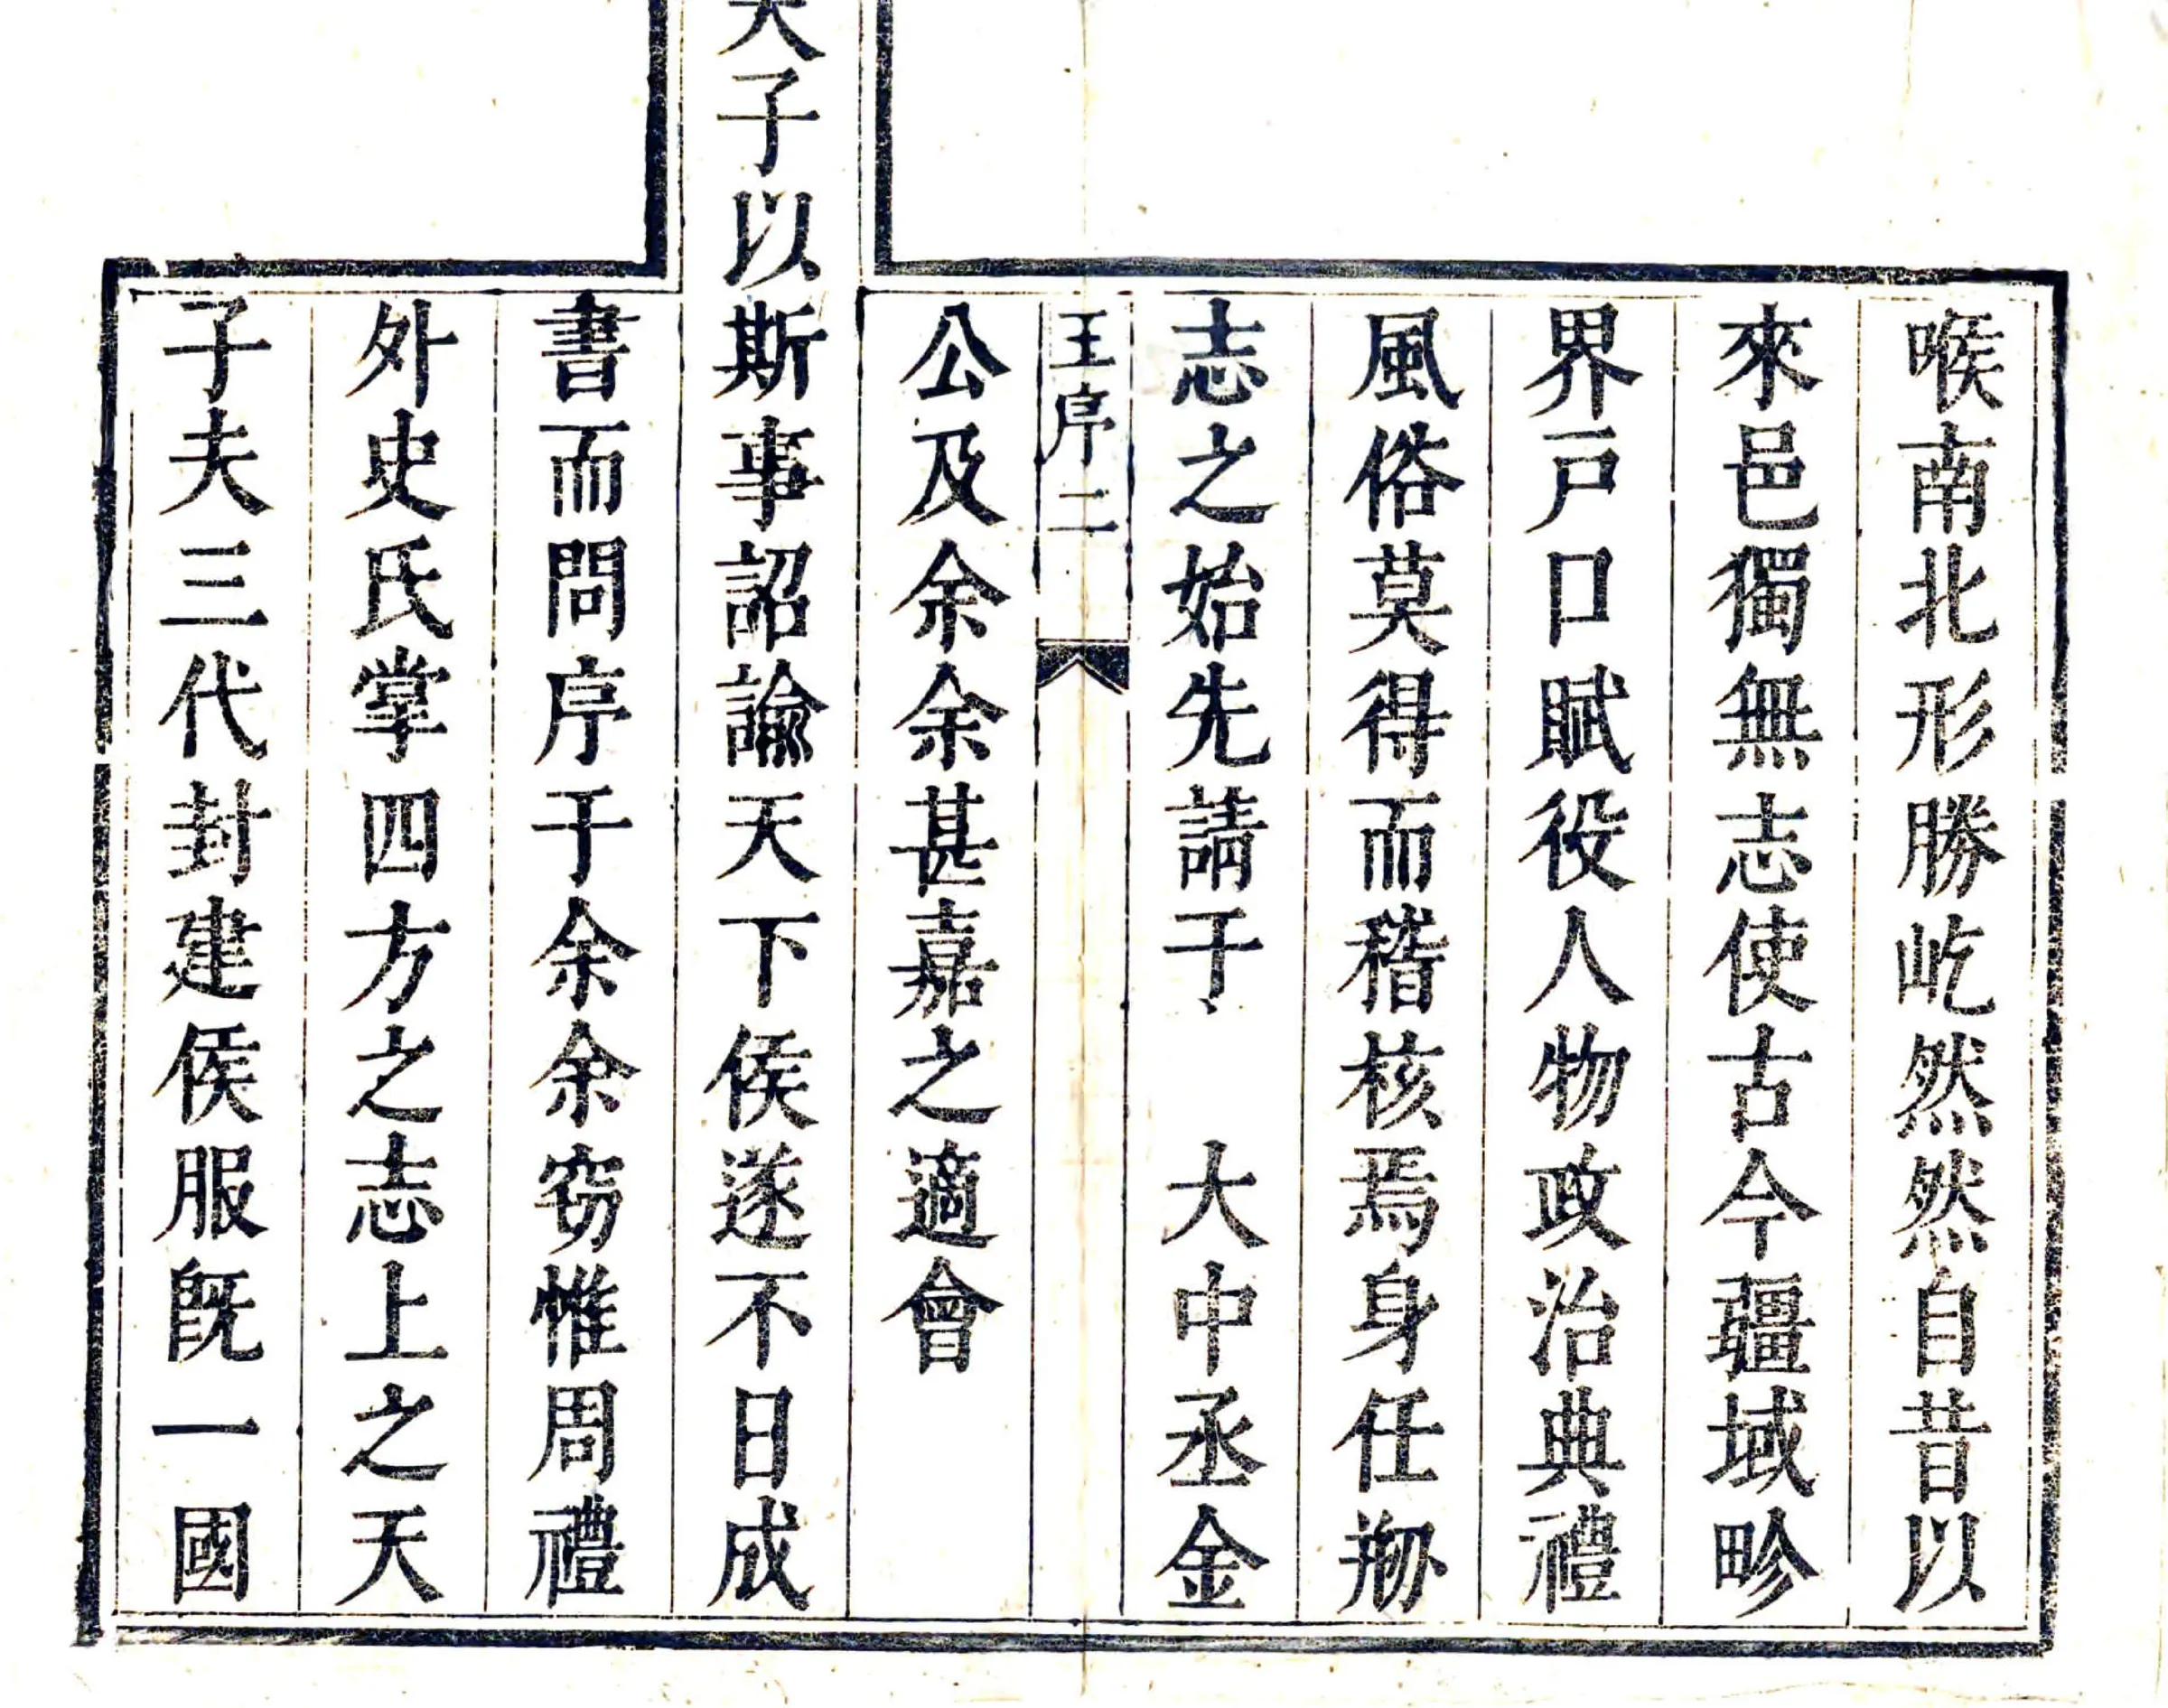 喉南北形勝屹然然自昔以
來邑獨無志使古今疆域畛
界戸口賦役人物政治典禮
風俗莫得而稽核焉身任剏
志之始先請于　大中丞金
王序二
公及余余甚嘉之適會
天子以斯事詔諭天下侯遂不日成
書而問序于余余窃惟周禮
外史氏掌四方之志上之天
子夫三代封建侯服旣一國